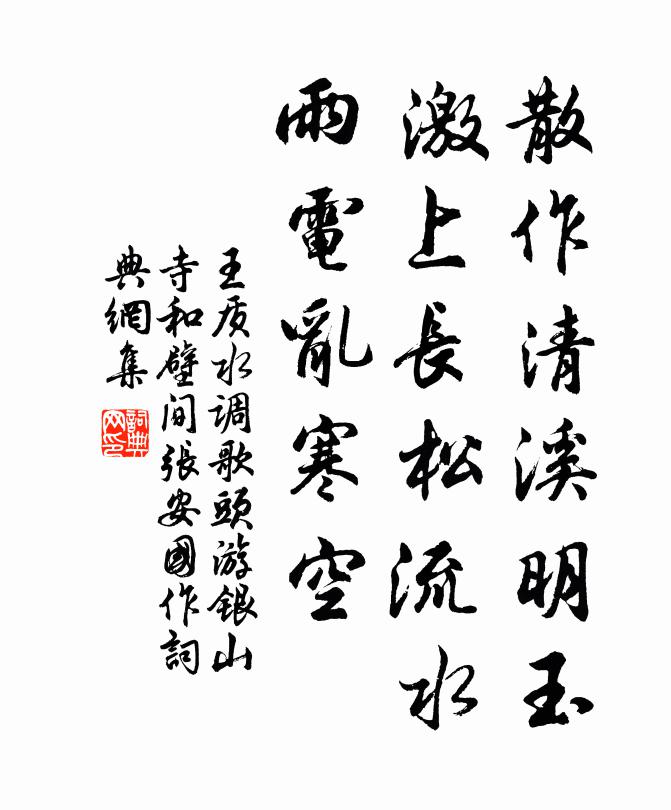 散作清溪明玉
激上長松流水
雨電亂寒空
王质水调歌頭游銀山
寺和壁间張安國作詞
典網集
詞典网印